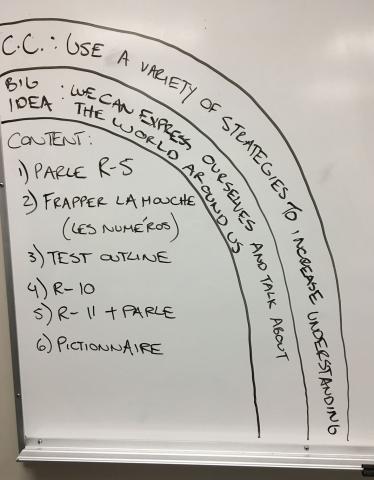 C.C.: USE A VARIETY OF STRATEGIES TO INCREASE UNDERSTANDING
BIG IDEA: WE CAN EXPRESS OURSELVES AND TALK ABOUT
THE WORLD AROUND US
CONTENT:
1) PARLE R-5
2) FRAPPER LA MOUCHE
(LES NUMÉROS)
3) TEST OUTLINE
4) R-10
5) R-11 + PARLE
6) PICTIONNAIRE